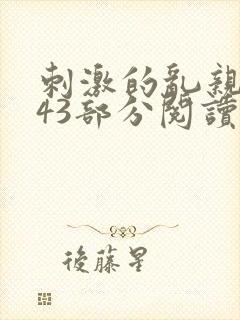 刺激的乱親
43部分閱讀
後藤星